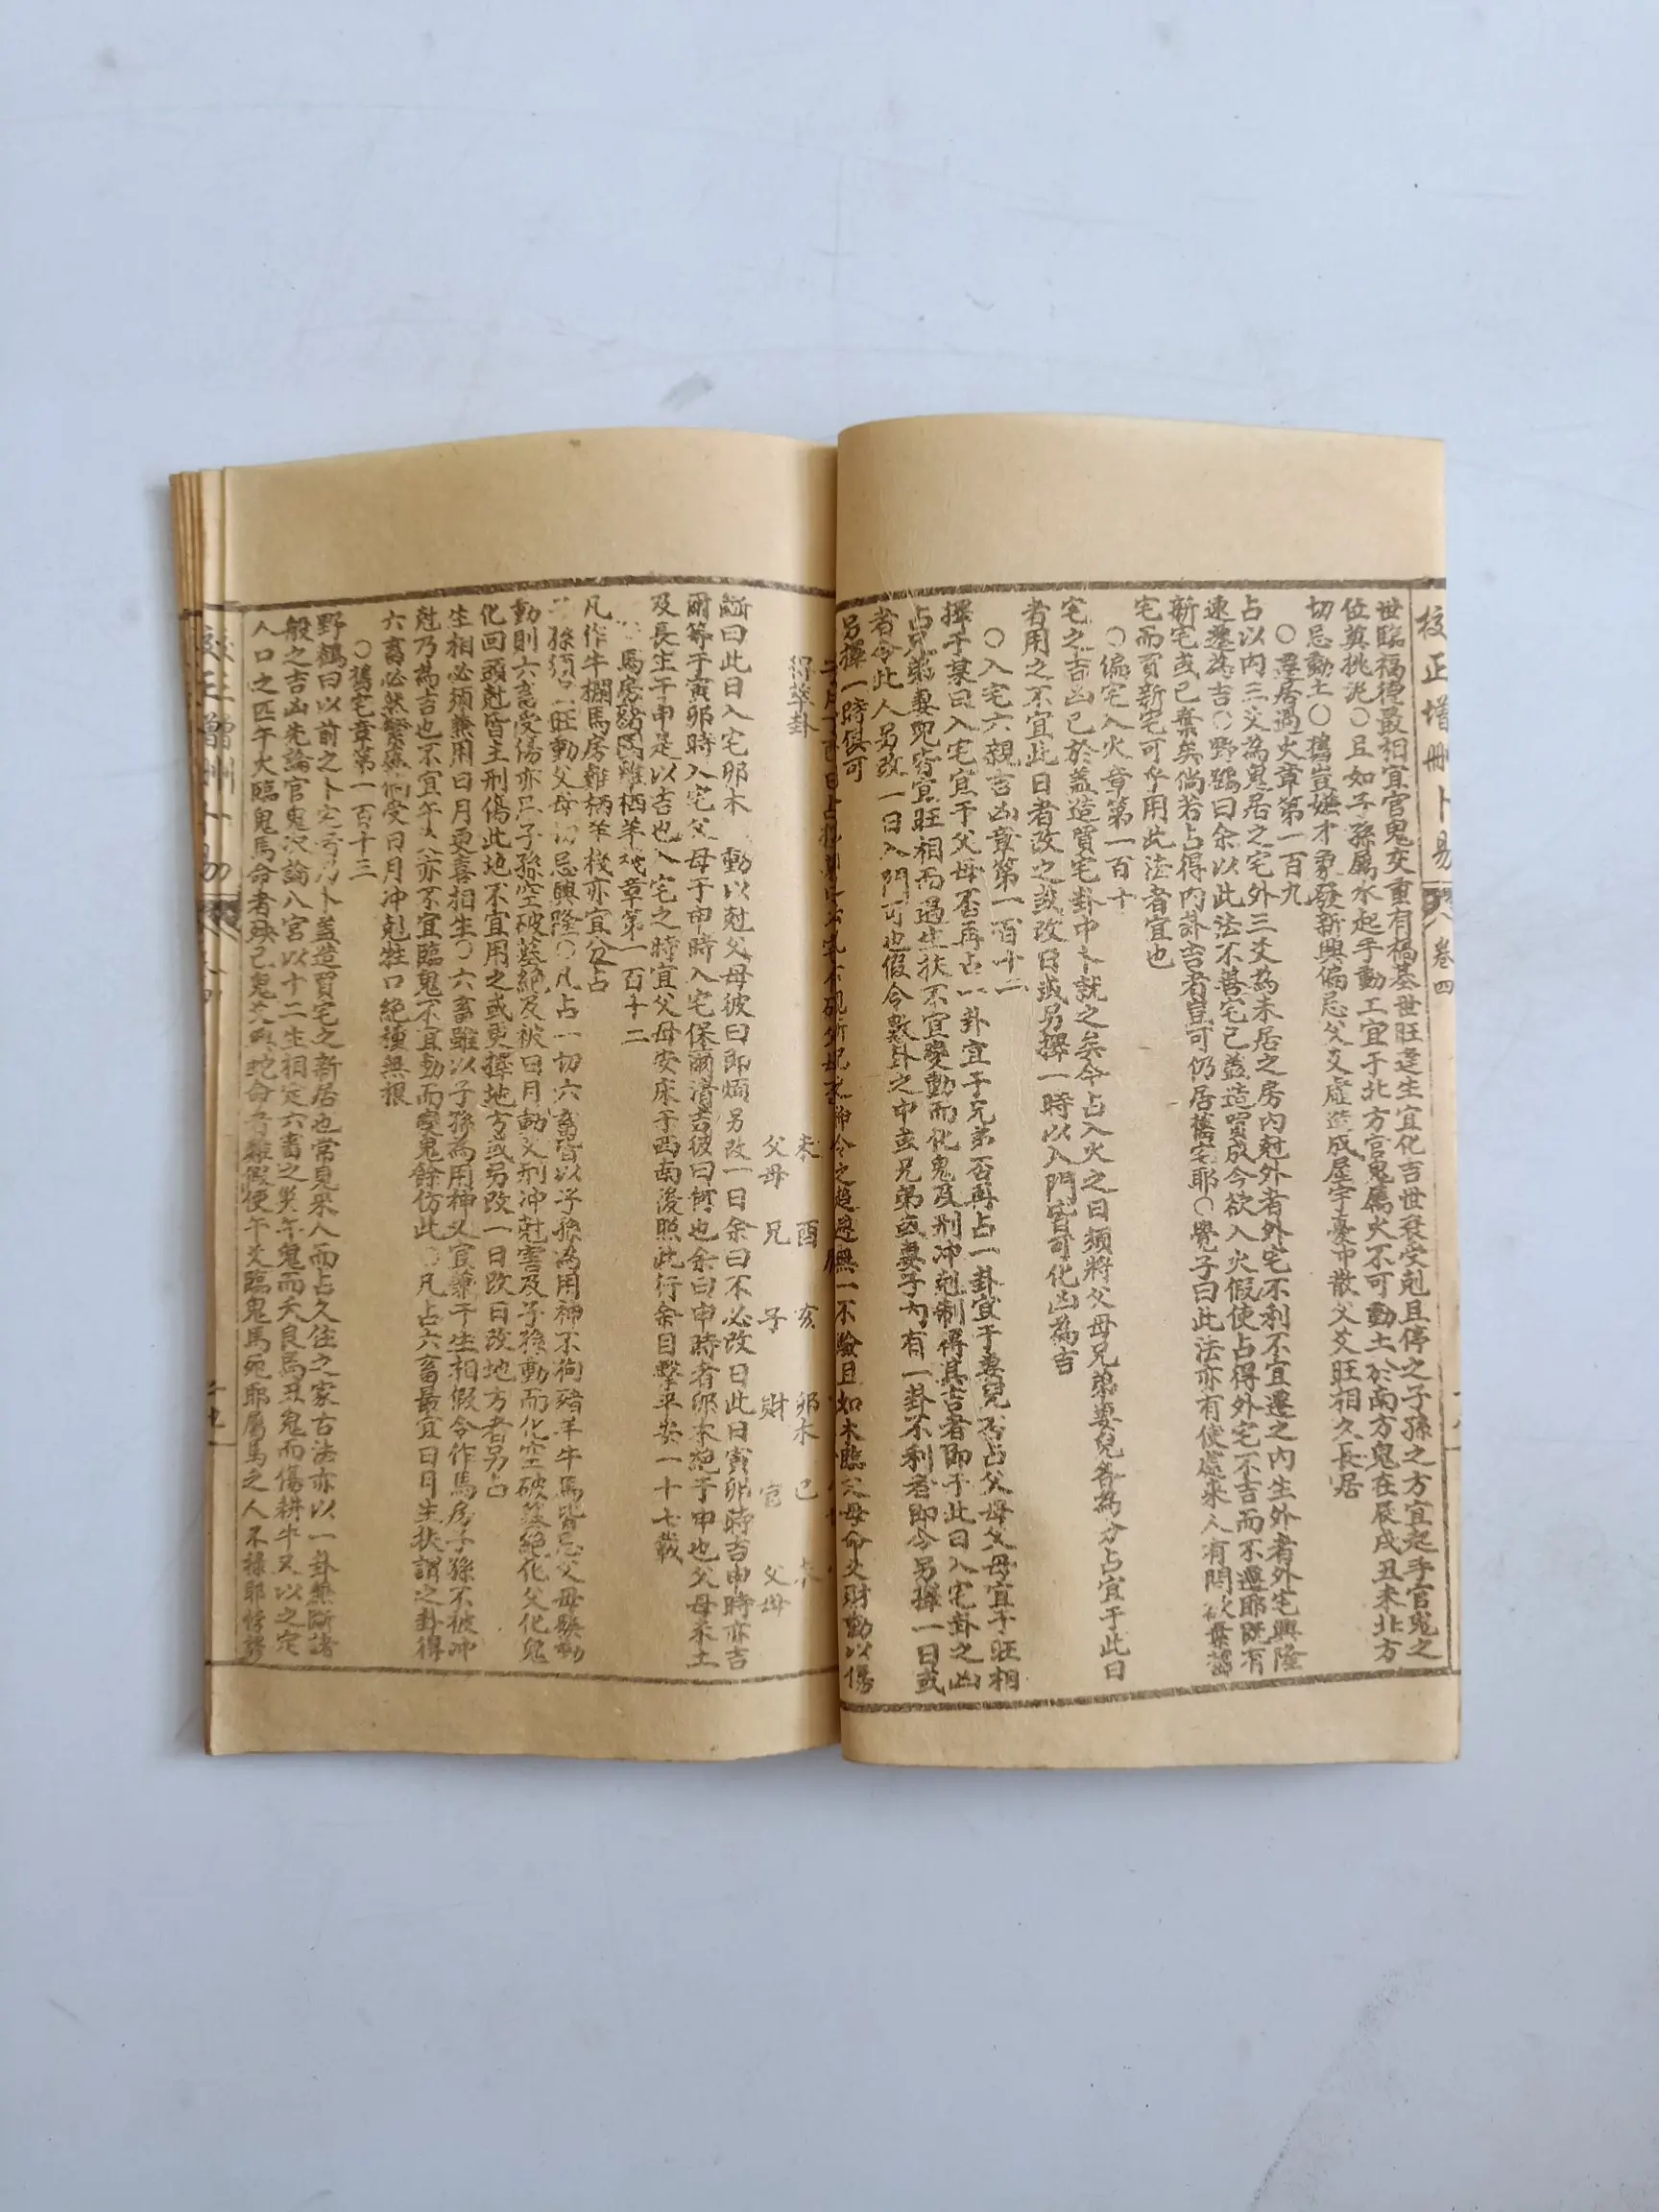 校正增刪卜易 卷四
世臨福德最相宜官鬼交重有禍基世旺逢生宜化吉世衰受剋且停之子孫之方宜起手官鬼之
位莫挑泥〇且如子孫屬水起手動工宜于北方官鬼屬火不可動土於南方鬼在辰戌丑未北方
切忌動土〇舊豈嫌才爻發新興偏忌父爻虛造成屋宇豪中散父爻旺相久長居
〇遷居過火章第一百九
占以內三爻為見居之宅外三爻為未居之房內尅外者外宅不利不宜遷之內生外者外宅興隆
速遷為吉〇野鶴曰余以此法不善宅已蓋造買成今欲入火假使占得外宅不吉而不遷耶既有
新宅或已棄矣倘若占得內卦吉者豈可仍居舊宅耶〇覺子曰此法亦有使處來人有問欲棄舊
宅而買新宅可乎用此法者宜也
〇偏宅入火章第一百十
宅之吉凶已於蓋造買宅卦中卜就之矣今占入火之日類將父母兄弟妻兒各為分占宜于此日
者用之不宜此日者改之或改日或另擇一時以入門皆可化凶為吉
〇入宅六親吉凶章第一百十一
擇于某日入宅宜于父母否再占一卦宜于兄弟否再占一卦宜于妻兒否占父母父母宜于旺相
占兄弟妻兒皆宜旺相而遇生扶不宜變動而化鬼及刑冲剋制得其吉者即于此日入宅卦之凶
者令此人另改一日入門可也假令數卦之中或兄弟或妻子內有一卦不利者即令另擇一日或
另擇一時俱可
得萃卦
未 酉 亥 卯木 巳 未
父母 兄 子 財 官 父母
斷曰此日入宅卯木 動以尅父母彼曰即煩另改一日余曰不必改日此日寅卯時吉申時亦吉
爾等于寅卯時入宅父母于申時入宅保爾清吉彼曰何也余曰申時者卯木絕于申也父母未土
及長生于申是以吉也入宅之時宜父母安床于西南後照此行余目擊平安一十七載
馬房猪圈雞栖羊棧章第一百十二
凡作牛欄馬房雞栖羊棧亦宜分占
旺動父母切忌興隆〇凡占一切六畜皆以子孫為用神不拘豬羊牛馬皆忌父母發動
動則六畜受傷亦忌子孫空破墓絕及被日月動爻刑冲尅害及子孫動而化空破墓絕化父化鬼
化回頭尅皆主刑傷此地不宜用之或更擇地方或另改一日改日改地方者另占
生相必須兼用日月更喜相生〇六畜雖以子孫為用神又宜兼于生相假令作馬房子孫不被冲
尅乃為吉也不宜午火亦不宜臨鬼不宜動而變鬼餘仿此〇凡占六畜最宜日月生扶謂之卦得
六畜必然繁 受日月冲剋牲口絕種無根
〇舊宅章第一百十三
野鶴曰以前之卜宅者乃卜蓋造買宅之新居也常見來人而占久住之家古法亦以一卦無斷諸
般之吉凶先論官鬼次論八宮以十二生相定六畜之災午鬼而夭良馬丑鬼而傷耕牛又以之定
人口之匹午火臨鬼馬命者殃己鬼爻 蛇命者難假使午爻臨鬼馬死耶屬馬之人不祿耶